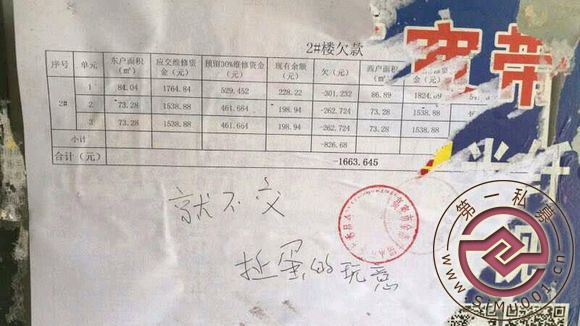 2#楼欠款
序号 单元 东户面积(㎡) 应交维修资金(元) 预留30%维修资金(元) 现有余额(元) 欠(元) 西户面积(㎡)
2# 1 84.04 1764.84 529.452 228.22 -301.232 86.89 1824.69
2 73.28 1538.88 461.664 198.94 -262.724 73.28 1538.88
3 73.28 1538.88 461.664 198.94 -262.724 73.28 1538.88
小计 -826.68
合计(元) -1663.645
就不交
扯蛋的玩意
宽带
第一私募
www.SiMu001.cn